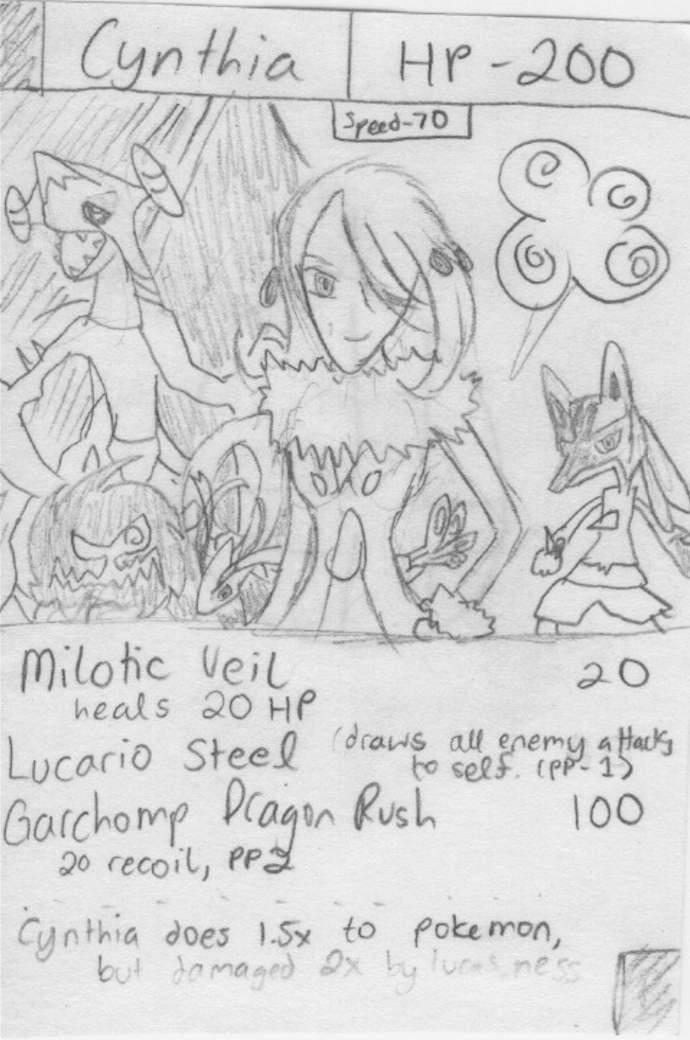 Cynthia
HP-200
Speed-70
Milotic Veil 20
heals 20 HP
Lucario Steel (draws all enemy attacks
to self. (PP-1)
Garchomp Dragon Rush 100
20 recoil, PP2
Cynthia does 1.5x to pokemon,
but damaged 2x by